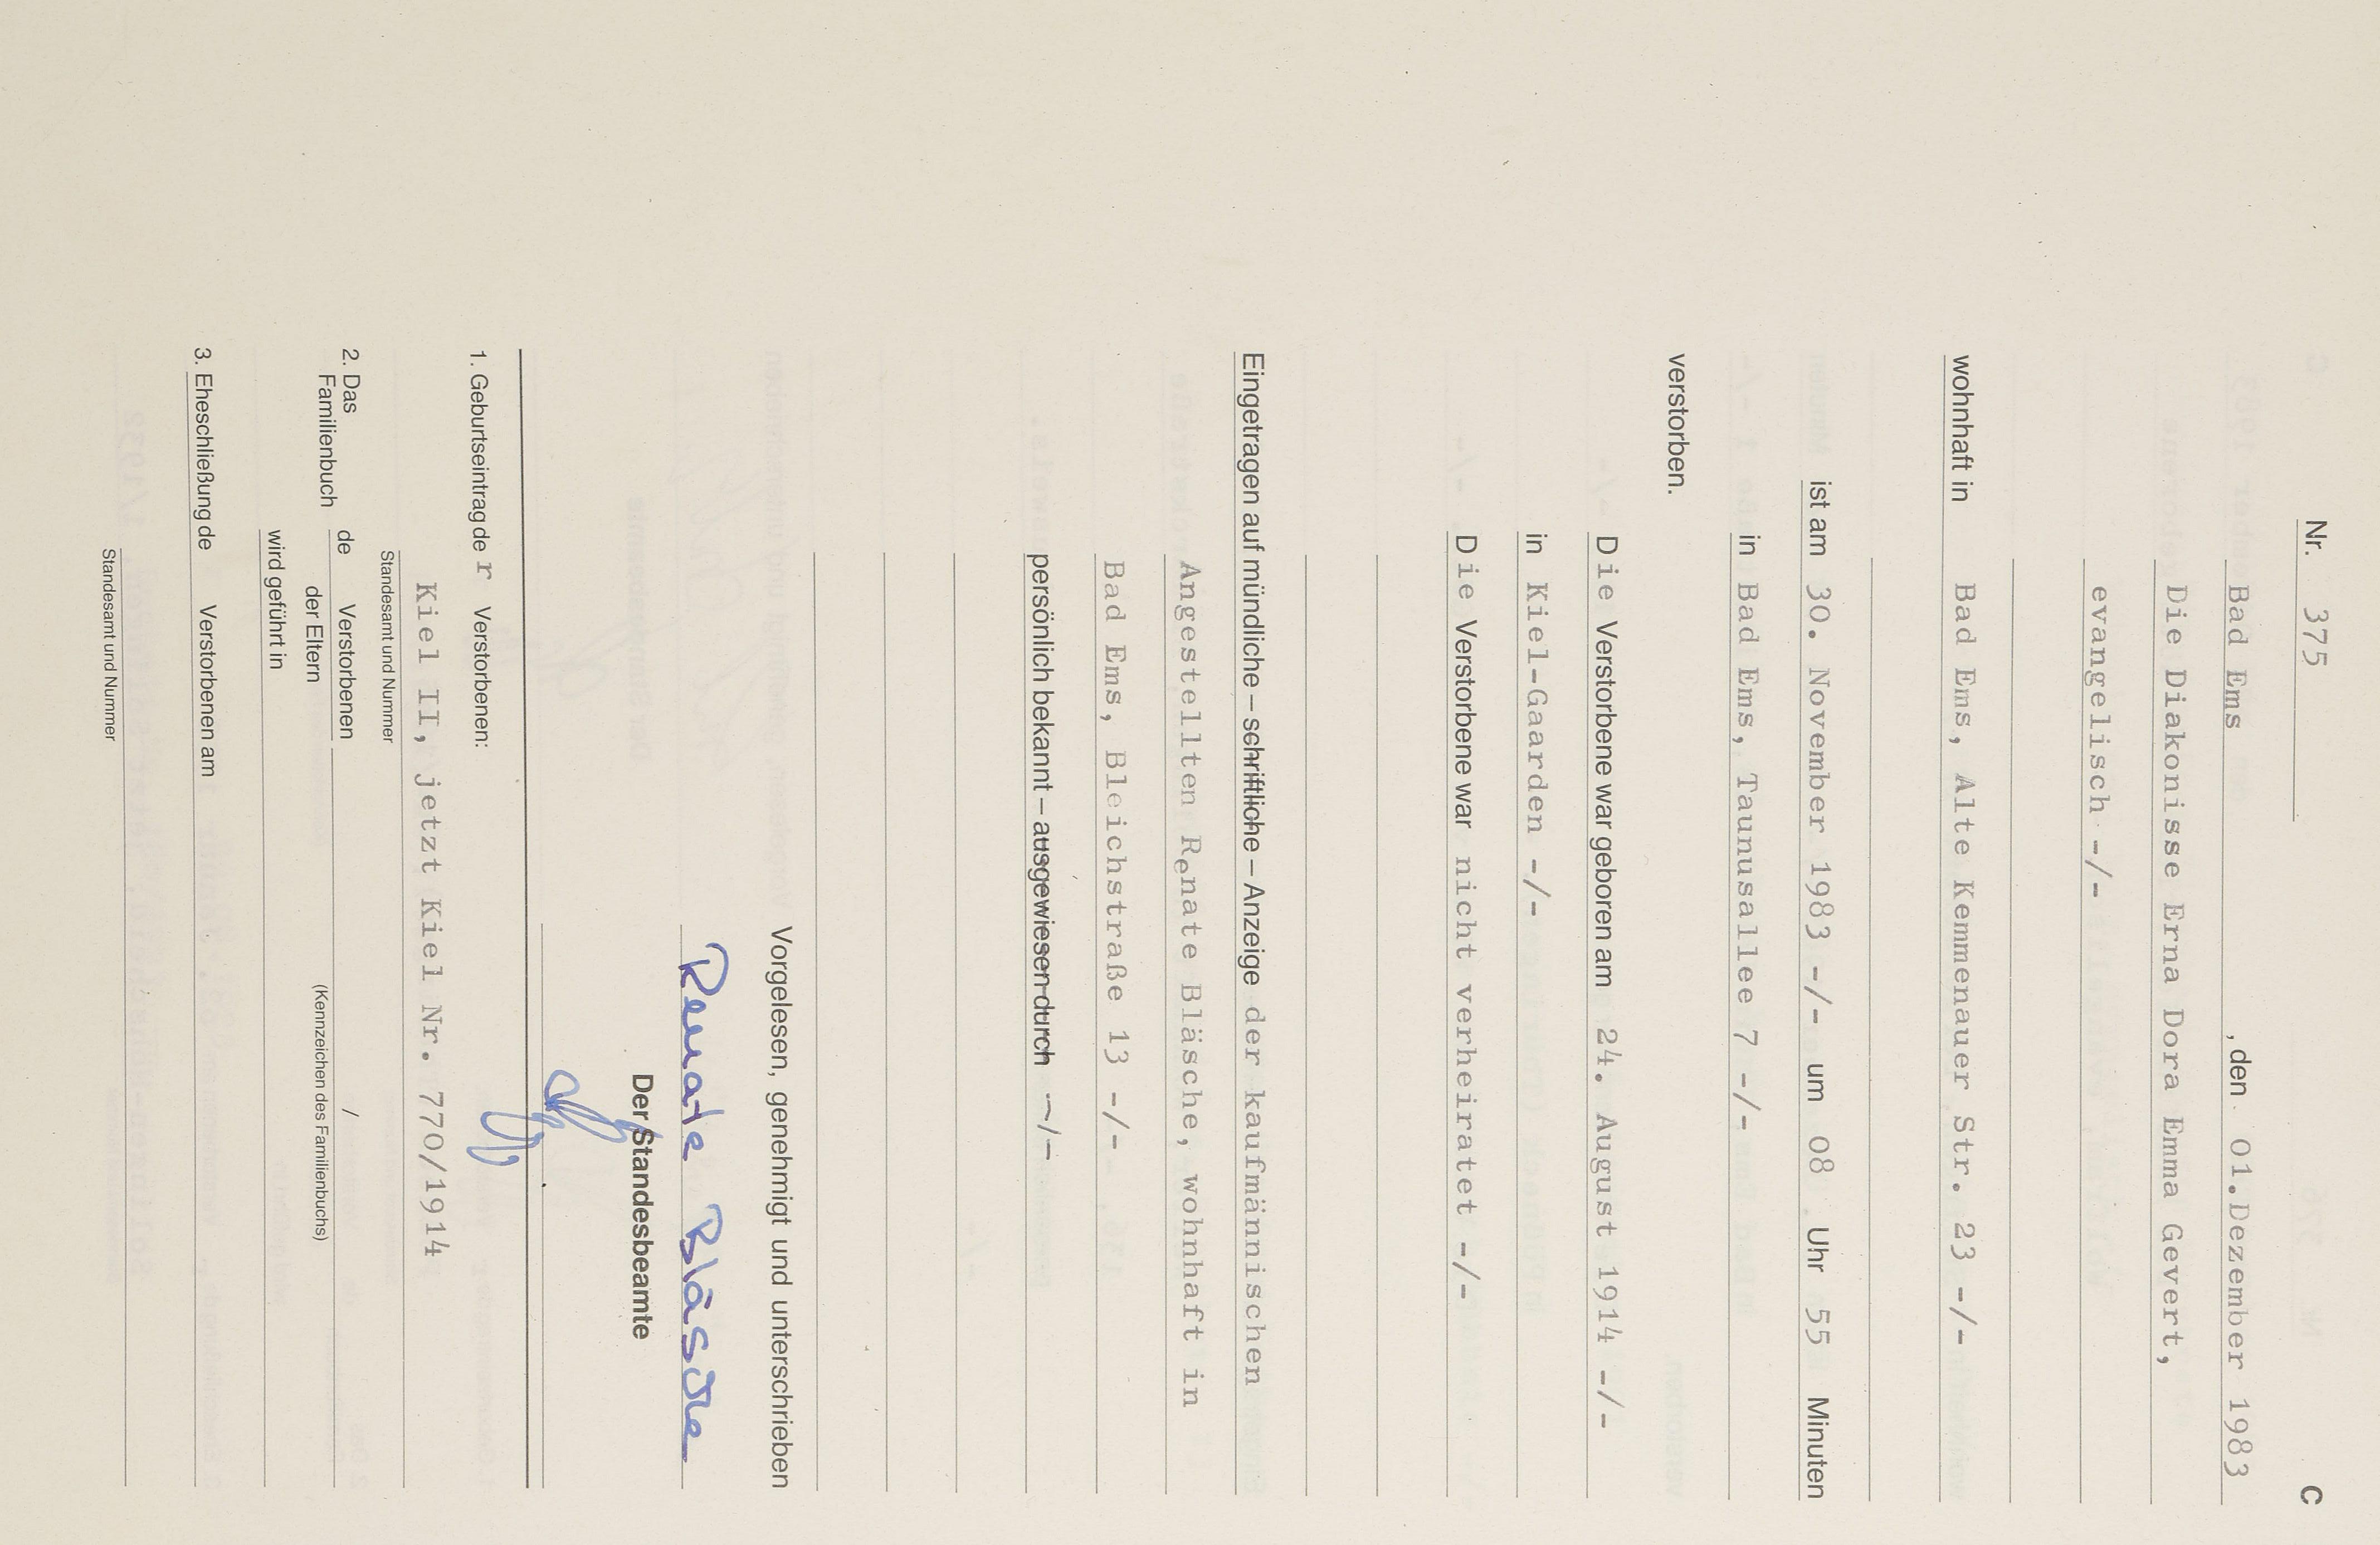 Nr. 375 C
Bad Ems , den 01.Dezember 1983
Die Diakonisse Erna Dora Emma Gevert,
evangelisch -/-
wohnhaft in Bad Ems, Alte Kemmenauer Str. 23 -/-
ist am 30. November 1983 -/- um 08 Uhr 55 Minuten
in Bad Ems, Taunusallee 7 -/-
verstorben.
Die Verstorbene war geboren am 24. August 1914 -/-
in Kiel-Gaarden -/-
Die Verstorbene war nicht verheiratet -/-
Eingetragen auf mündliche – schriftliche – Anzeige der kaufmännischen
Angestellten Renate Bläsche, wohnhaft in
Bad Ems, Bleichstraße 13 -/-
persönlich bekannt – ausgewiesen durch -/-
Vorgelesen, genehmigt und unterschrieben
Renate Bläsche
Der Standesbeamte
1. Geburtseintrag der Verstorbenen:
Kiel II, jetzt Kiel Nr. 770/1914
Standesamt und Nummer
2. Das Familienbuch de Verstorbenen /
der Eltern (Kennzeichen des Familienbuchs)
wird geführt in
3. Eheschließung de Verstorbenen am
Standesamt und Nummer